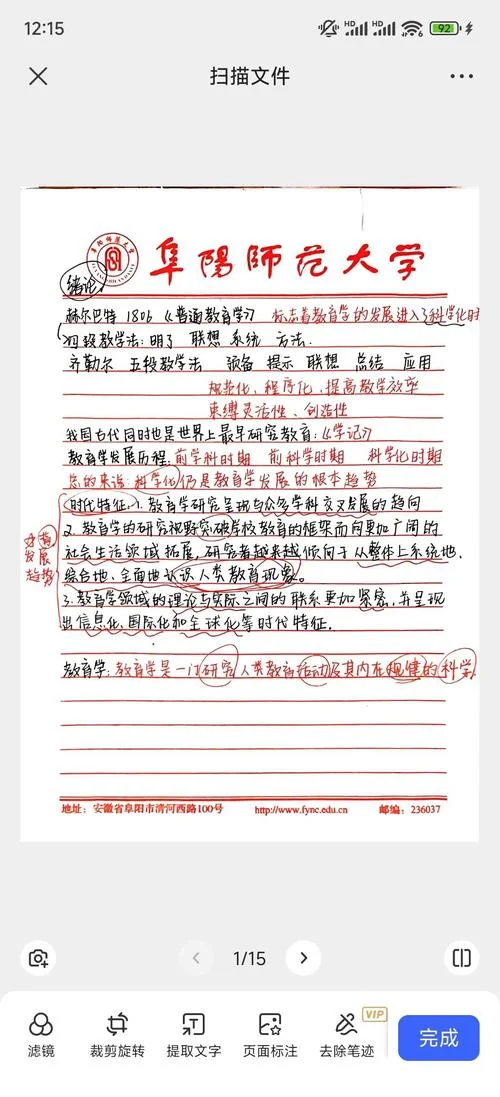 12:15
HD HD 92
扫描文件
阜阳师范大学
绪论
赫尔巴特 1806 《普通教育学》 标志着教育学的发展进入了科学化时
四段教学法:明了 联想 系统 方法.
齐勒尔 五段教学法 预备 提示 联想 总结 应用
规范化、程序化、提高教学效率
束缚灵活性、创造性
我国古代同时也是世界上最早研究教育:《学记》
教育学发展历程:前学科时期 前科学时期 科学化时期
总的来说:科学化仍是教育学发展的根本趋势
时代特征:1.教育学研究呈现与众多学科交叉发展的趋向
2.教育学的研究视野突破学校教育的框架而向更加广阔的
发展
趋势
社会生活领域拓展,研究者越来越倾向于从整体上系统地、
综合地、全面地认识人类教育现象。
3.教育学领域的理论与实际之间的联系更加紧密,并呈现
出信息化、国际化和全球化等时代特征.
教育学:教育学是一门研究人类教育活动及其内在规律的科学
地址:安徽省阜阳市清河西路100号 http://www.fync.edu.cn 邮编:236037
1/15
滤镜 裁剪旋转 提取文字 页面标注 去除笔迹 VIP 完成